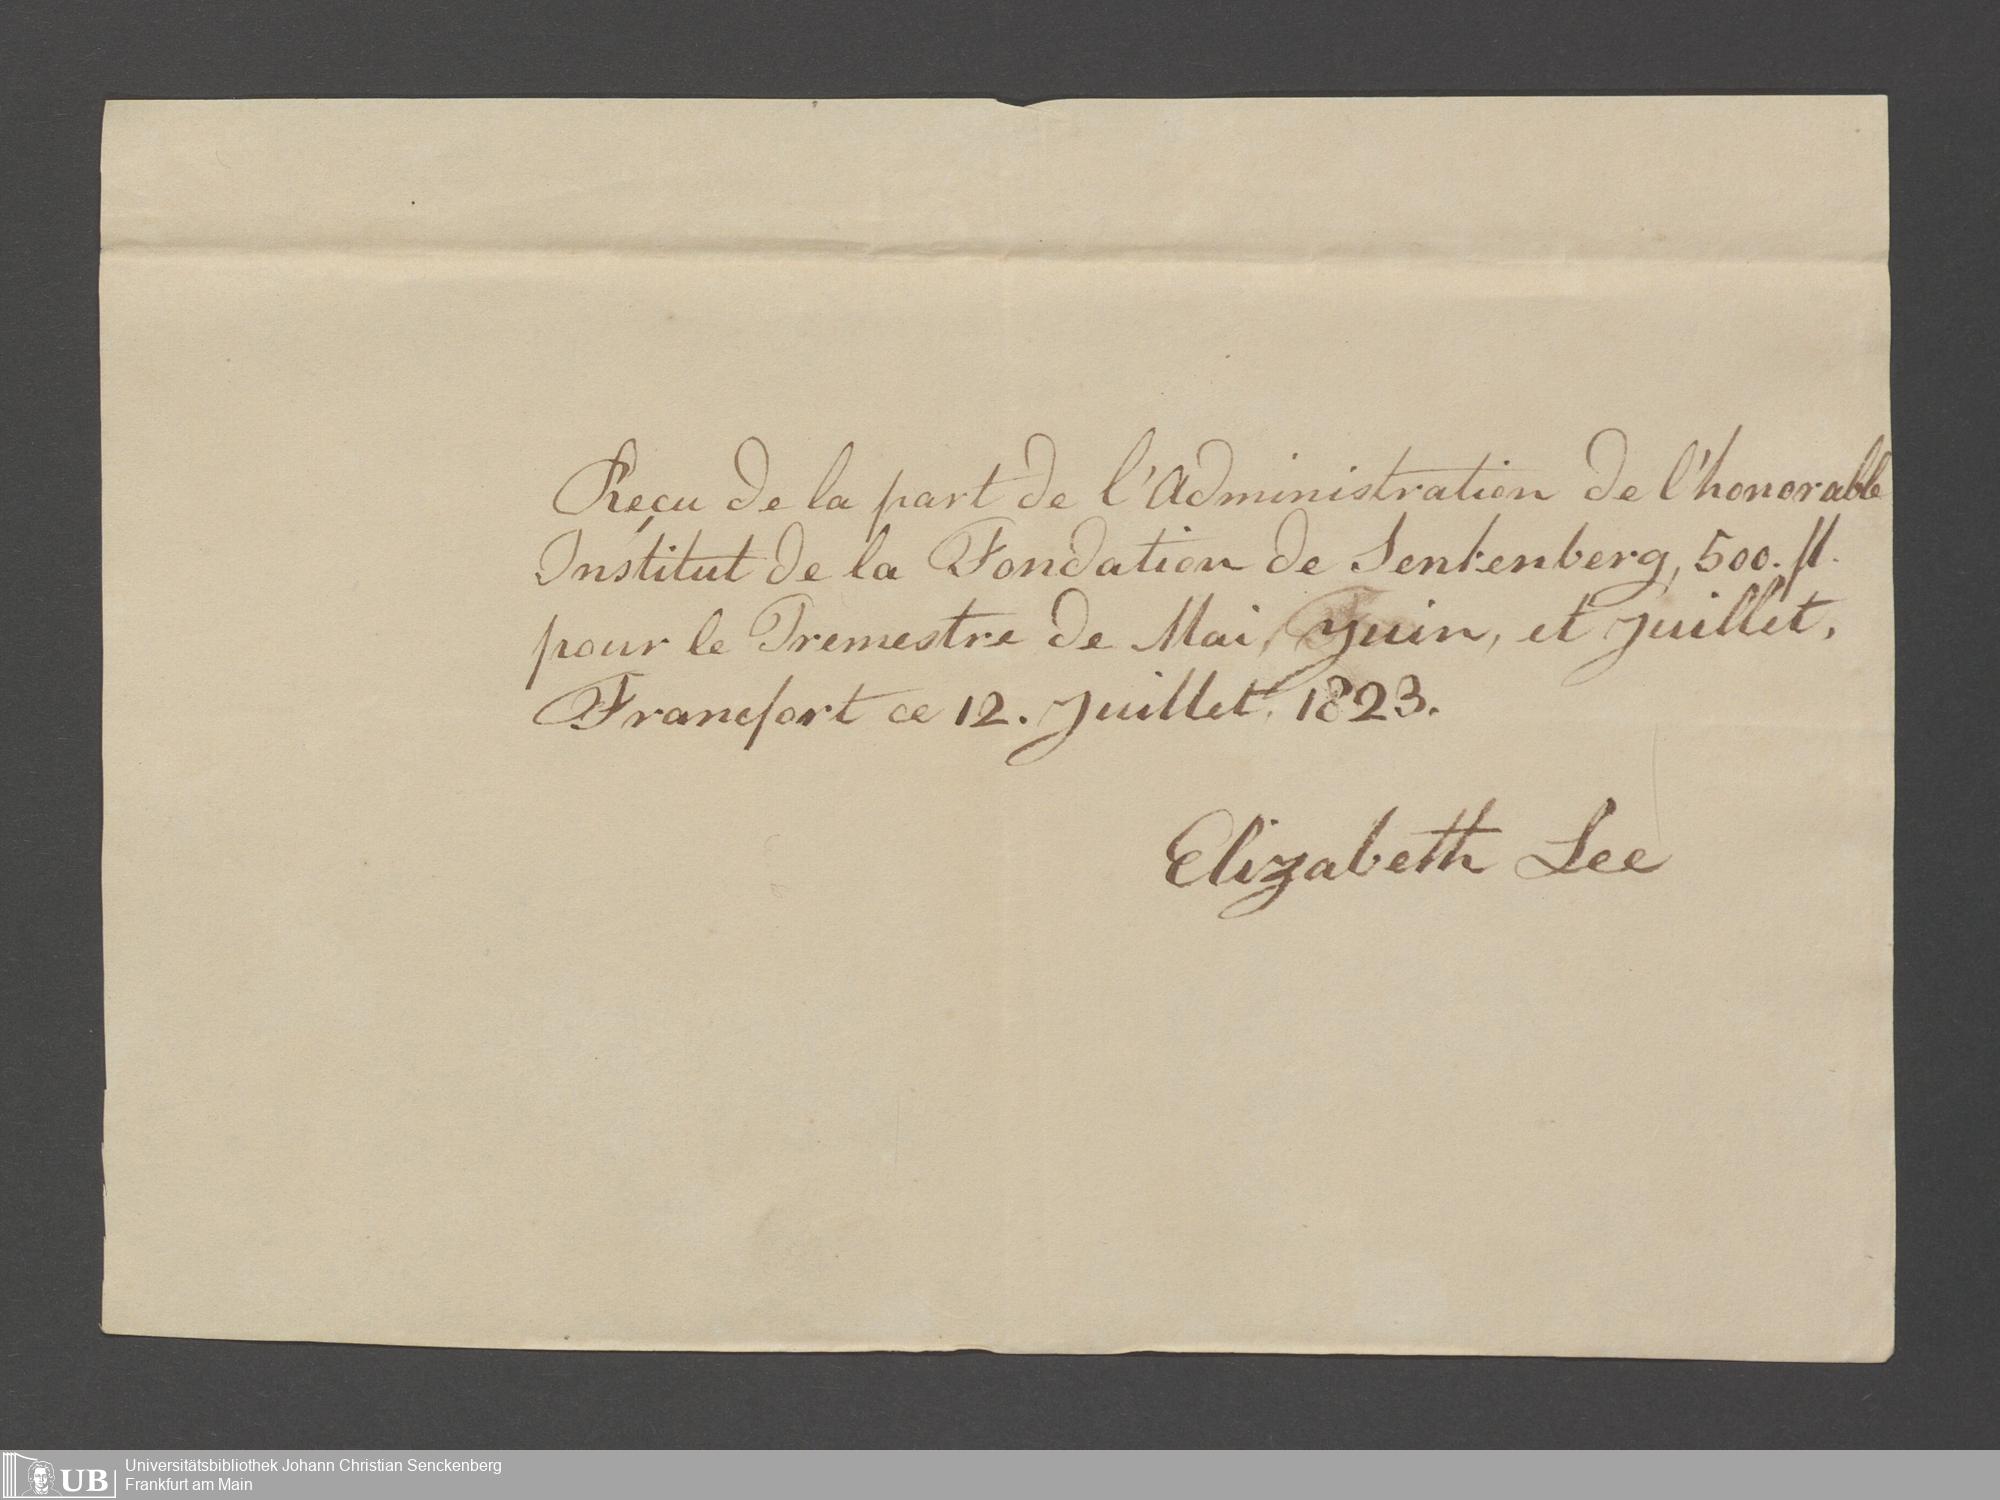 Reçu de la part de l'Administration de l'honorable
Institut de la Fondation de Senkenberg, 500. fl.
pour le Tremestre de Mai, Juin, et Juillet,
Francfort ce 12. Juillet. 1823.
Elizabeth Lee
UB
Universitätsbibliothek Johann Christian Senckenberg
Frankfurt am Main